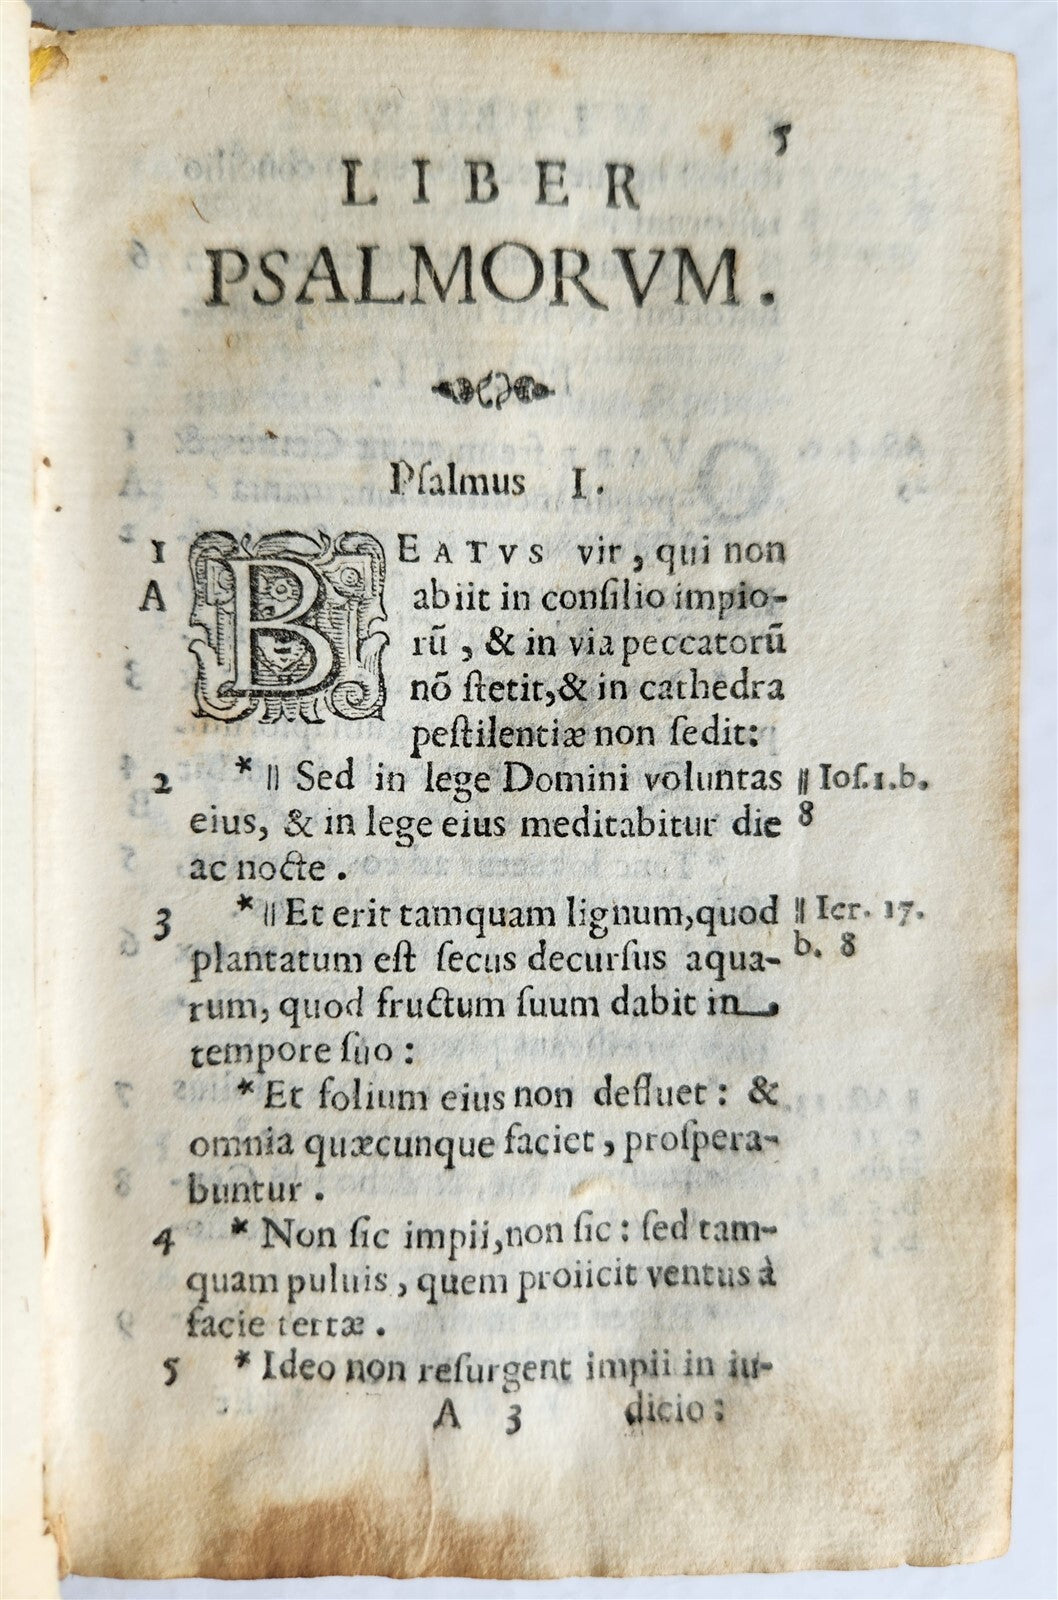 5
LIBER
PSALMORVM.
Pſalmus I.
1 BEATVS vir, qui non
A abiit in conſilio impio-
rũ, & in via peccatorũ
nõ ſtetit, & in cathedra
peſtilentiæ non ſedit:
2 * || Sed in lege Domini voluntas || Ioſ. 1. b.
eius, & in lege eius meditabitur die 8
ac nocte.
3 * || Et erit tamquam lignum, quod || Ier. 17.
plantatum eſt ſecus decurſus aqua- b. 8
rum, quod fructum ſuum dabit in
tempore ſuo:
* Et folium eius non defluet: &
omnia quæcunque faciet, proſpera-
buntur.
4 * Non ſic impii, non ſic: ſed tam-
quam puluis, quem proiicit ventus à
facie terræ.
5 * Ideo non reſurgent impii in iu-
A 3 dicio: